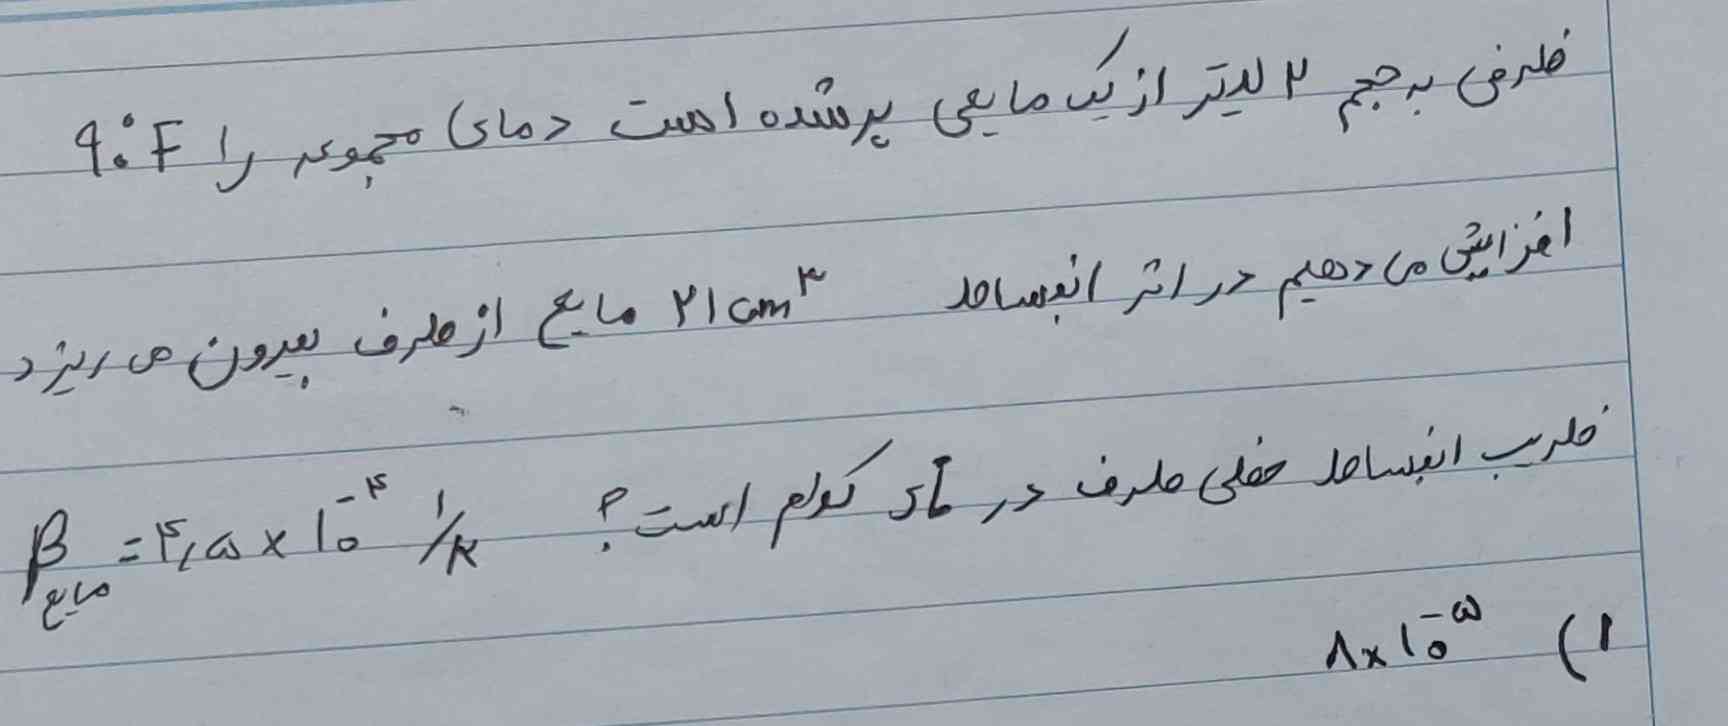 ظرفی به حجم ۲ لیتر از یک مایعی پر شده است دمای مجموعه را ۹۰°F
افزایش می دهیم در اثر انبساط ۲۱cm³ مایع از ظرف بیرون می ریزد
ضریب انبساط خطی ظرف در SI کدام است؟ β مایع = ۴٫۵ × ۱۰⁻⁴ ۱/K
۱) ۸×۱۰⁻⁵